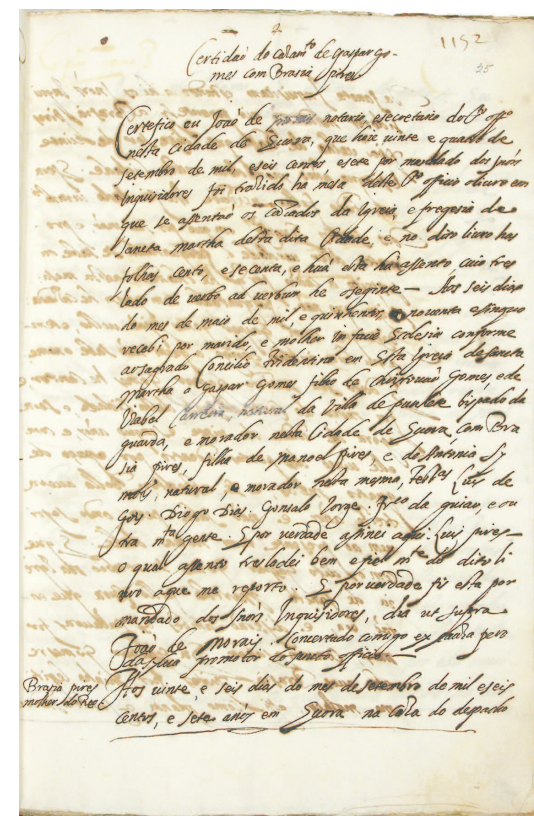 1152
25
Certidaõ do Cazam.to de Gaspar Go-
mes com Brasia pires
Certefico eu Joaõ de morais notario, e secretario do S.to off.o
nesta Cidade de Euora, que hoie uinte e quatro de
setembro de mil, e seis centos, e sete por mandado dos snõres
Inquisidores foi trazido ha mesa deste S.to officio o liuro em
que se assentaõ os Cazados da Igreia, e fregesia de
sancta martha desta dita Cidade, e no dito liuro has
folhas cento, e secenta, e huã esta ha assento cuio tres
lado de uerbo ad uerbum he o seginte — Aos seis dias
do mes de maio de mil, e quinhentos e nouenta e sinquo
recebi por marido, e molher in facie Eclesia conforme
ao sagrado Consilio tridentino em Esta Igreia de sancta
Martha a Gaspar Gomes filho de Gomes, e de
Isabel natural da Villa de bispado da
guarda, e morador nesta Cidade de Euora, Com Bra
sia pires, filha de Manoel pires e de Antonia Sy
mois, natural, e morador nesta mesma, test.as Luis de
Gois. Diogo Dias. Gonsalo Jorge. fr.co da guiar, e ou
tra m.ta gente. E por uerdade asinei aqui. Luis pires —
o qual assento tresladei bem e fielm.te do dito li
uro a que me reporto. E por uerdade fiz esta por
mandado dos snõres Inquisidores, dia ut supra
Joaõ de Morais. Concertado comigo
promotor do sancto officio —
Brasia pires
molher do Reo
Aos uinte, e seis dias do mes de setembro de mil e seis
Centos, e sete anos em Euora na Caza do despacho